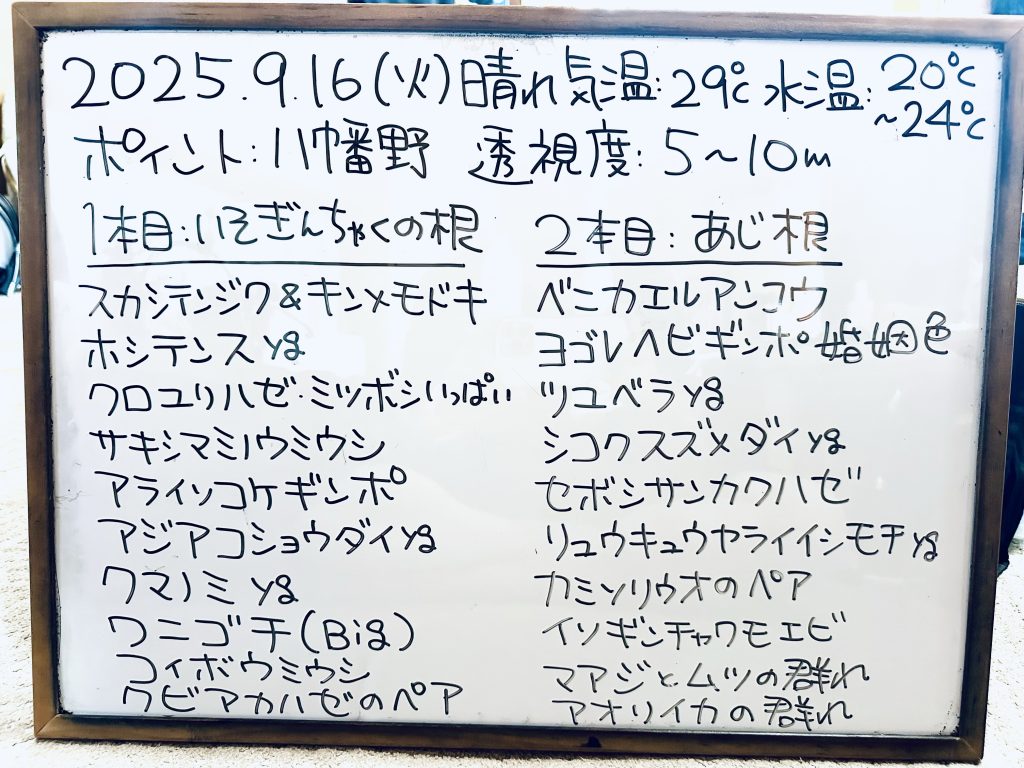 2025.9.16(火)晴れ 気温:29℃ 水温:20℃~24℃
ポイント:八幡野 透視度:5~10m
1本目:いそぎんちゃくの根
スカシテンジク&キンメモドキ
ホシテンスyg
クロユリハゼ・ミツボシいっぱい
サキシマミノウミウシ
アライソコケギンポ
アジアコショウダイyg
クマノミyg
ワニゴチ(Big)
コイボウミウシ
クビアカハゼのペア
2本目:あじ根
ベニカエルアンコウ
ヨゴレヘビギンポ婚姻色
ツユベラyg
シコクスズメダイyg
セボシサンカクハゼ
リュウキュウヤライイシモチyg
カミソリウオのペア
イソギンチャクモエビ
マアジとムツの群れ
アオリイカの群れ